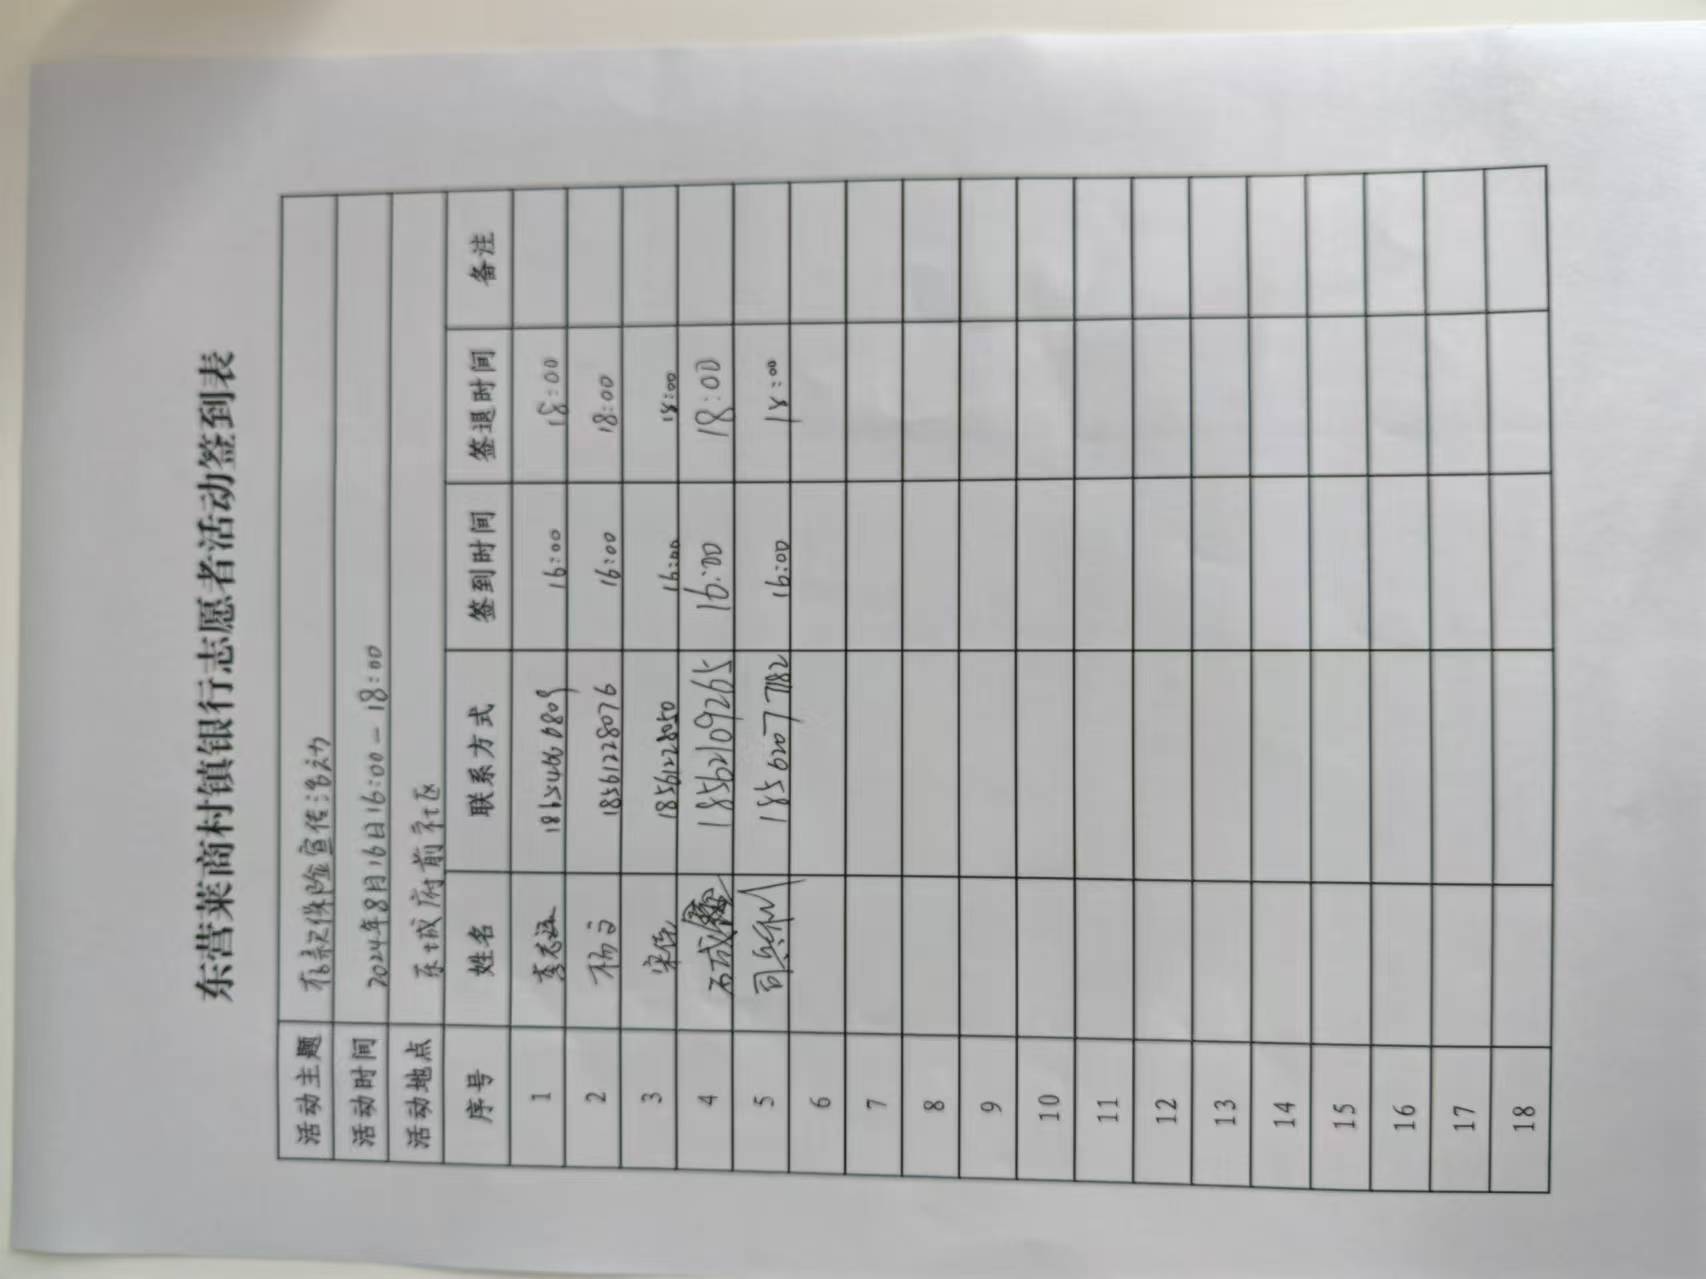 东营莱商村镇银行志愿者活动签到表
活动主题 存款保险宣传活动
活动时间 2024年8月16日16:00-18:00
活动地点 东城府前社区
序号 姓名 联系方式 签到时间 签退时间 备注
1 18654606809 16:00 18:00
2 杨 18561228076 16:00 18:00
3 宋 18561228050 16:00 18:00
4 18562109265 16:00 18:00
5 18562077182 16:00 18:00
6
7
8
9
10
11
12
13
14
15
16
17
18